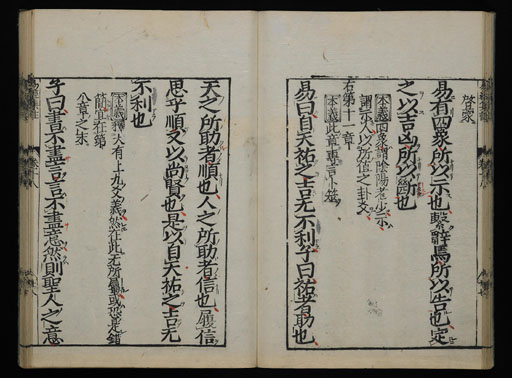 啓蒙
易有四象所以示也繫辭焉所以告也定
之以吉凶所以斷也
本義四象謂陰陽老少示
謂示人以所值之卦爻
右第十一章
本義此章專言卜筮
易曰自天祐之吉无不利子曰祐者助也
天之所助者順也人之所助者信也履信
思乎順又以尚賢也是以自天祐之吉无
不利也
本義釋大有上九爻義然在此无所屬或恐是錯
簡宜在第
八章之末
子曰書不盡言言不盡意然則聖人之意